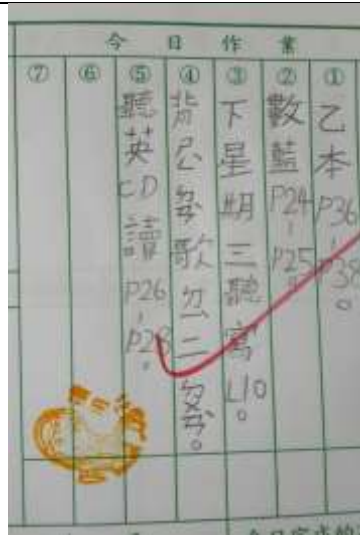 今日作業
① 乙本P36-P38。
② 數藍P24-P25。
③ 下星期三聽寫L10。
④ 背 歌 二 。
⑤ 聽英CD讀P26-P28。
⑥
⑦